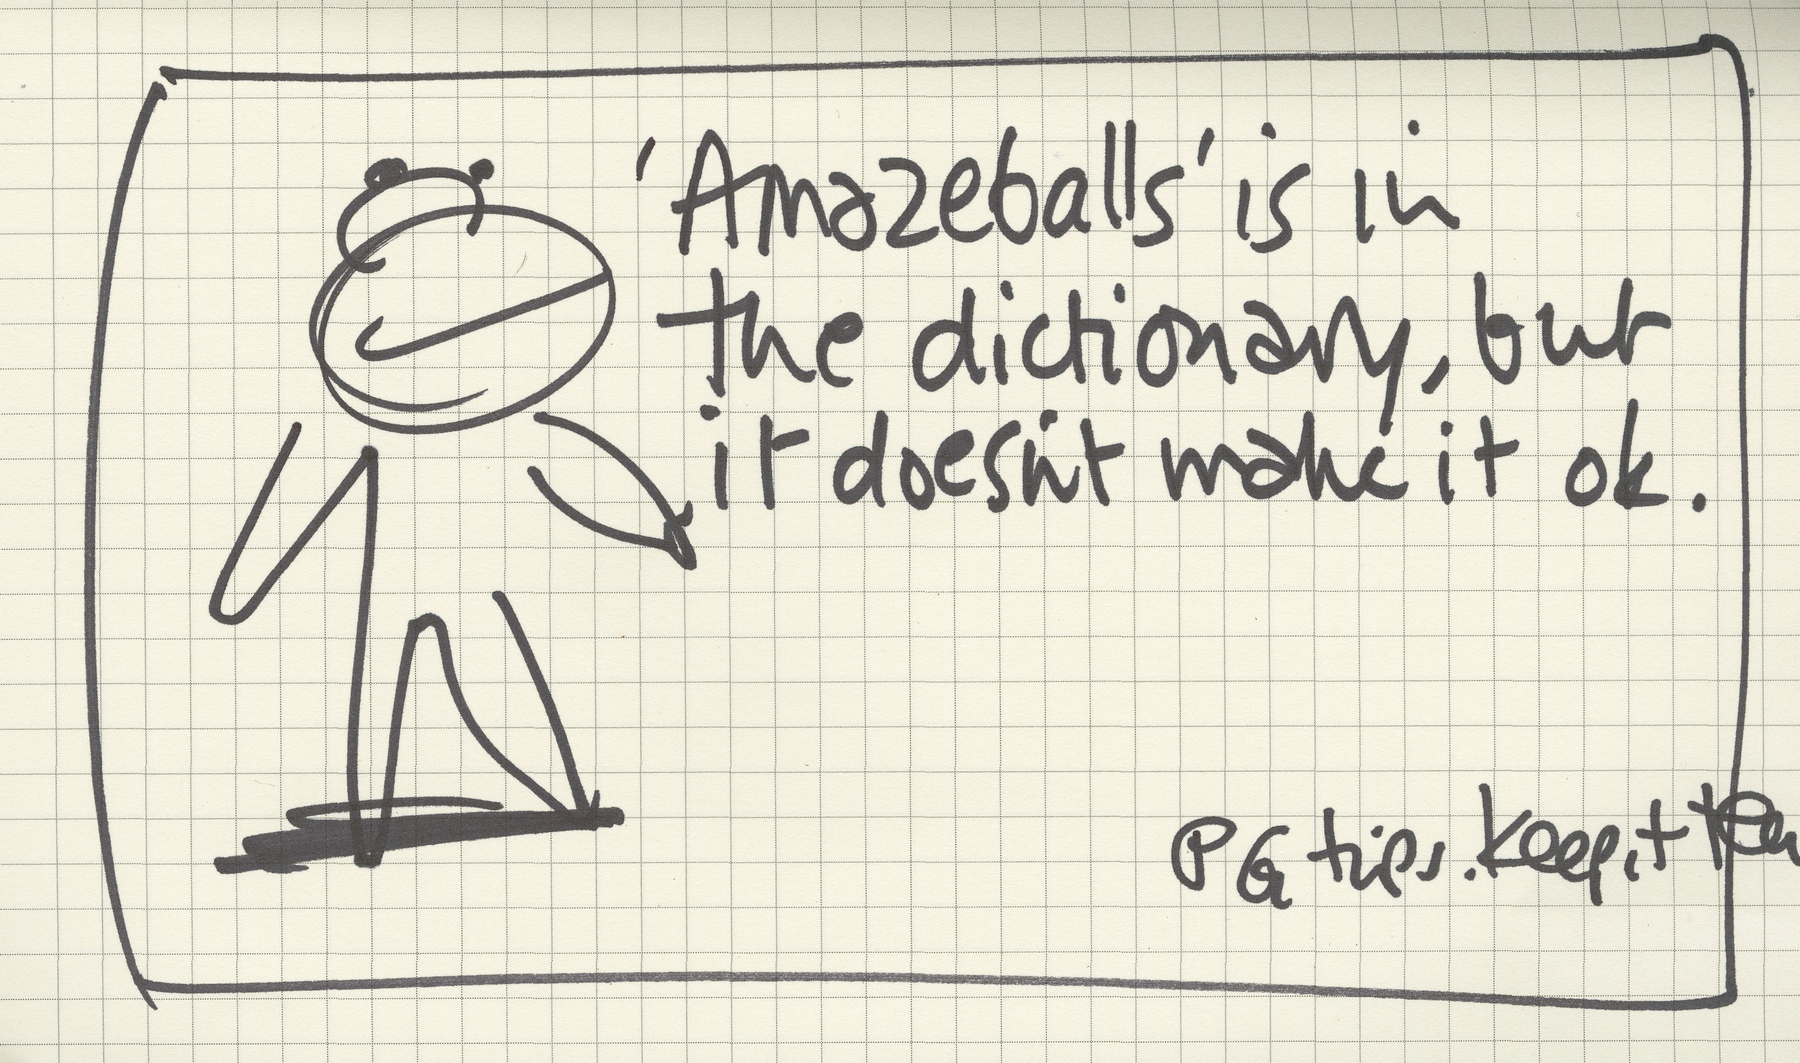 'Amazeballs' is in
the dictionary, but
it doesn't make it ok.
PG tips. Keep it